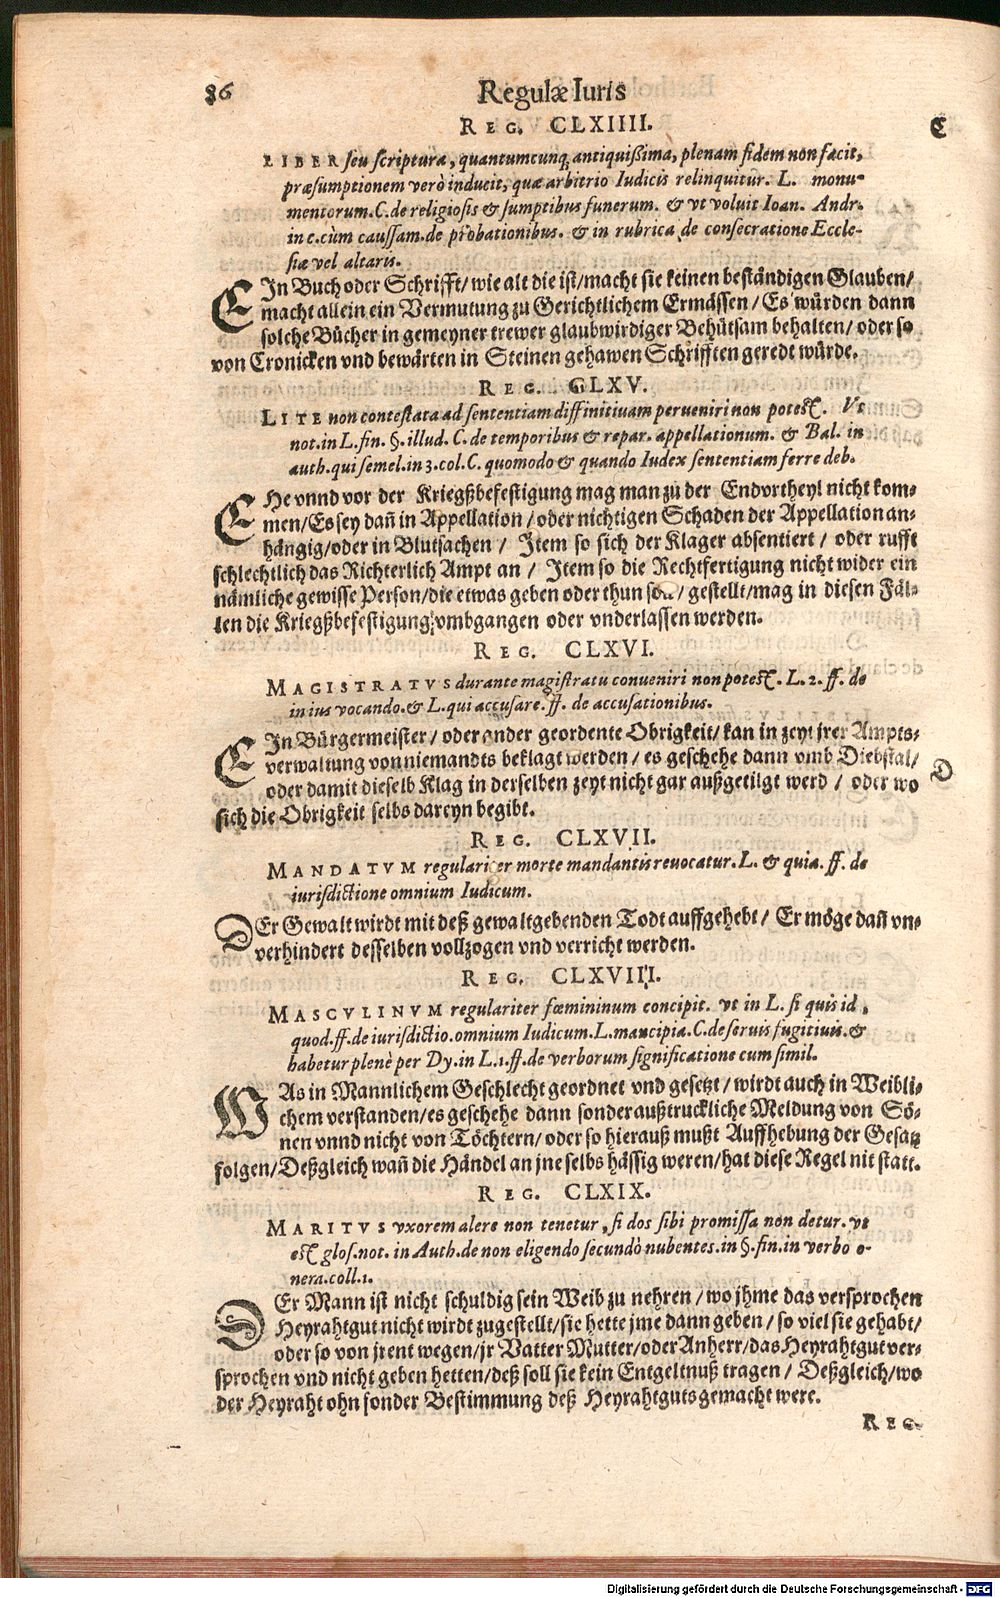 86 Regulæ Iuris
REG. CLXIIII.
C
LIBER seu scriptura, quantumcunq; antiquißima, plenam fidem non facit,
præsumptionem verò inducit, quæ arbitrio Iudicis relinquitur. L. monu-
mentorum. C. de religiosis & sumptibus funerum. & vt voluit Ioan. Andr.
in c. cùm caussam. de probationibus. & in rubrica de consecratione Eccle-
siæ vel altaris.
EIn Buch oder Schrifft/ wie alt die ist/ macht sie keinen beständigen Glauben/
macht allein ein Vermutung zu Gerichtlichem Ermässen/ Es würden dann
solche Bücher in gemeyner trewer glaubwirdiger Behütsam behalten/ oder so
von Cronicken vnd bewärten in Steinen gehawen Schrifften geredt würde.
REG. CLXV.
LITE non contestata ad sententiam diffinitiuam perueniri non potest. Vt
not. in L. fin. §. illud. C. de temporibus & repar. appellationum. & Bal. in
auth. qui semel. in 3. col. C. quomodo & quando Iudex sententiam ferre deb.
EHe vnnd vor der Kriegßbefestigung mag man zu der Endvrtheyl nicht kom-
men/ Es sey dañ in Appellation / oder nichtigen Schaden der Appellation an-
hängig/ oder in Blutsachen / Item so sich der Klager absentiert / oder rufft
schlechtlich das Richterlich Ampt an / Item so die Rechtfertigung nicht wider ein
nämliche gewisse Person/ die etwas geben oder thun soll/ gestellt/ mag in diesen Fäl-
len die Kriegßbefestigung vmbgangen oder vnderlassen werden.
REG. CLXVI.
MAGISTRATVS durante magistratu conueniri non potest. L. 2. ff. de
in ius vocando. & L. qui accusare. ff. de accusationibus.
EIn Bürgermeister/ oder ander geordente Obrigkeit/ kan in zeyt jrer Ampts-
verwaltung von niemandts beklagt werden / es geschehe dann vmb Diebstal/
D
oder damit dieselb Klag in derselben zeyt nicht gar außgetilgt werd / oder wo
sich die Obrigkeit selbs dareyn begibt.
REG. CLXVII.
MANDATVM regulariter morte mandantis reuocatur. L. & quia. ff. de
iurisdictione omnium Iudicum.
DEr Gewalt wirdt mit deß gewaltgebenden Todt auffgehebt / Er möge dañ vn-
verhindert desselben vollzogen vnd verricht werden.
REG. CLXVIII.
MASCVLINVM regulariter fœmininum concipit. vt in L. si quis id,
quod. ff. de iurisdictio. omnium Iudicum. L. mancipia. C. de seruis fugitiuis. &
habetur plenè per Dy. in L. 1. ff. de verborum significatione cum simil.
WAs in Mannlichem Geschlecht geordnet vnd gesetzt / wirdt auch in Weibli-
chem verstanden/ es geschehe dann sonder außtruckliche Meldung von Sö-
nen vnnd nicht von Töchtern/ oder so hierauß mußt Auffhebung der Gesatz
folgen/ Deßgleich wañ die Händel an jne selbs hässig weren/ hat diese Regel nit statt.
REG. CLXIX.
MARITVS vxorem alere non tenetur, si dos sibi promissa non detur. vt
est glos. not. in Auth. de non eligendo secundò nubentes. in §. fin. in verbo o-
nera. coll. 1.
DEr Mann ist nicht schuldig sein Weib zu nehren / wo jhme das versprochen
Heyrahtgut nicht wirdt zugestellt/ sie hette jme dann geben / so viel sie gehabt/
oder so von jrent wegen/ jr Vatter Mutter/ oder Anherr/ das Heyrahtgut ver-
sprochen vnd nicht geben hetten/ deß soll sie kein Entgeltnuß tragen / Deßgleich/ wo
der Heyraht ohn sonder Bestimmung deß Heyrahtguts gemacht were.
REG.
Digitalisierung gefördert durch die Deutsche Forschungsgemeinschaft - DFG